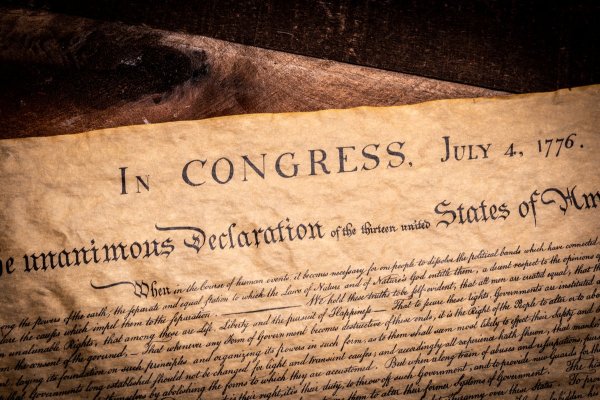 In CONGRESS, July 4, 1776.
he unanimous Declaration of the thirteen united States of Am
When in the Course of human events, it becomes necessary for one people to dissolve the political bands which have connected
ong the powers of the earth, the separate and equal station to which the Laws of Nature and of Nature's God entitle them, a decent respect to the opinions of
the causes which impel them to the separation. We hold these truths to be self-evident, that all men are created equal, that
unalienable Rights, that among these are Life, Liberty and the pursuit of Happiness. That to secure these rights, Governments are instituted
the consent of the governed, That whenever any Form of Government becomes destructive of these ends, it is the Right of the People to alter or to abo
laying its foundation on such principles and organizing its powers in such form, as to them shall seem most likely to effect their Safety and
that Governments long established should not be changed for light and transient causes; and accordingly all experience hath shewn, that
by abolishing the forms to which they are accustomed. But when a long train of abuses and usurpations,
it is their right, it is their duty, to throw off such Government, and to provide new Guards for
them to alter their former Systems of Government. The
over these States. To